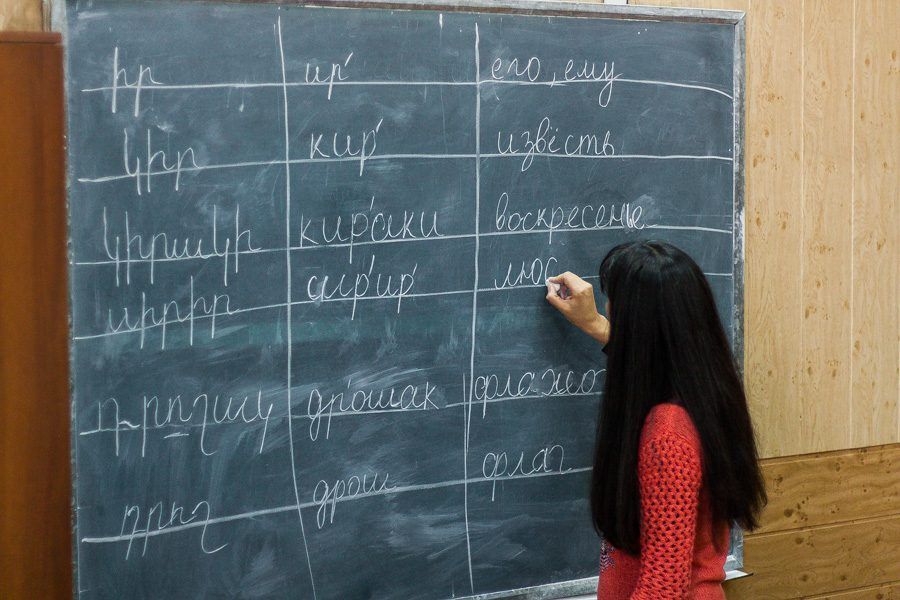 իր ир́ его, ему
կիր кир́ известь
կիրակի кир́аки воскресенье
սիրիր сир́ир́
դրոշակ др́ошак флажо
դրոշ дрош флаг